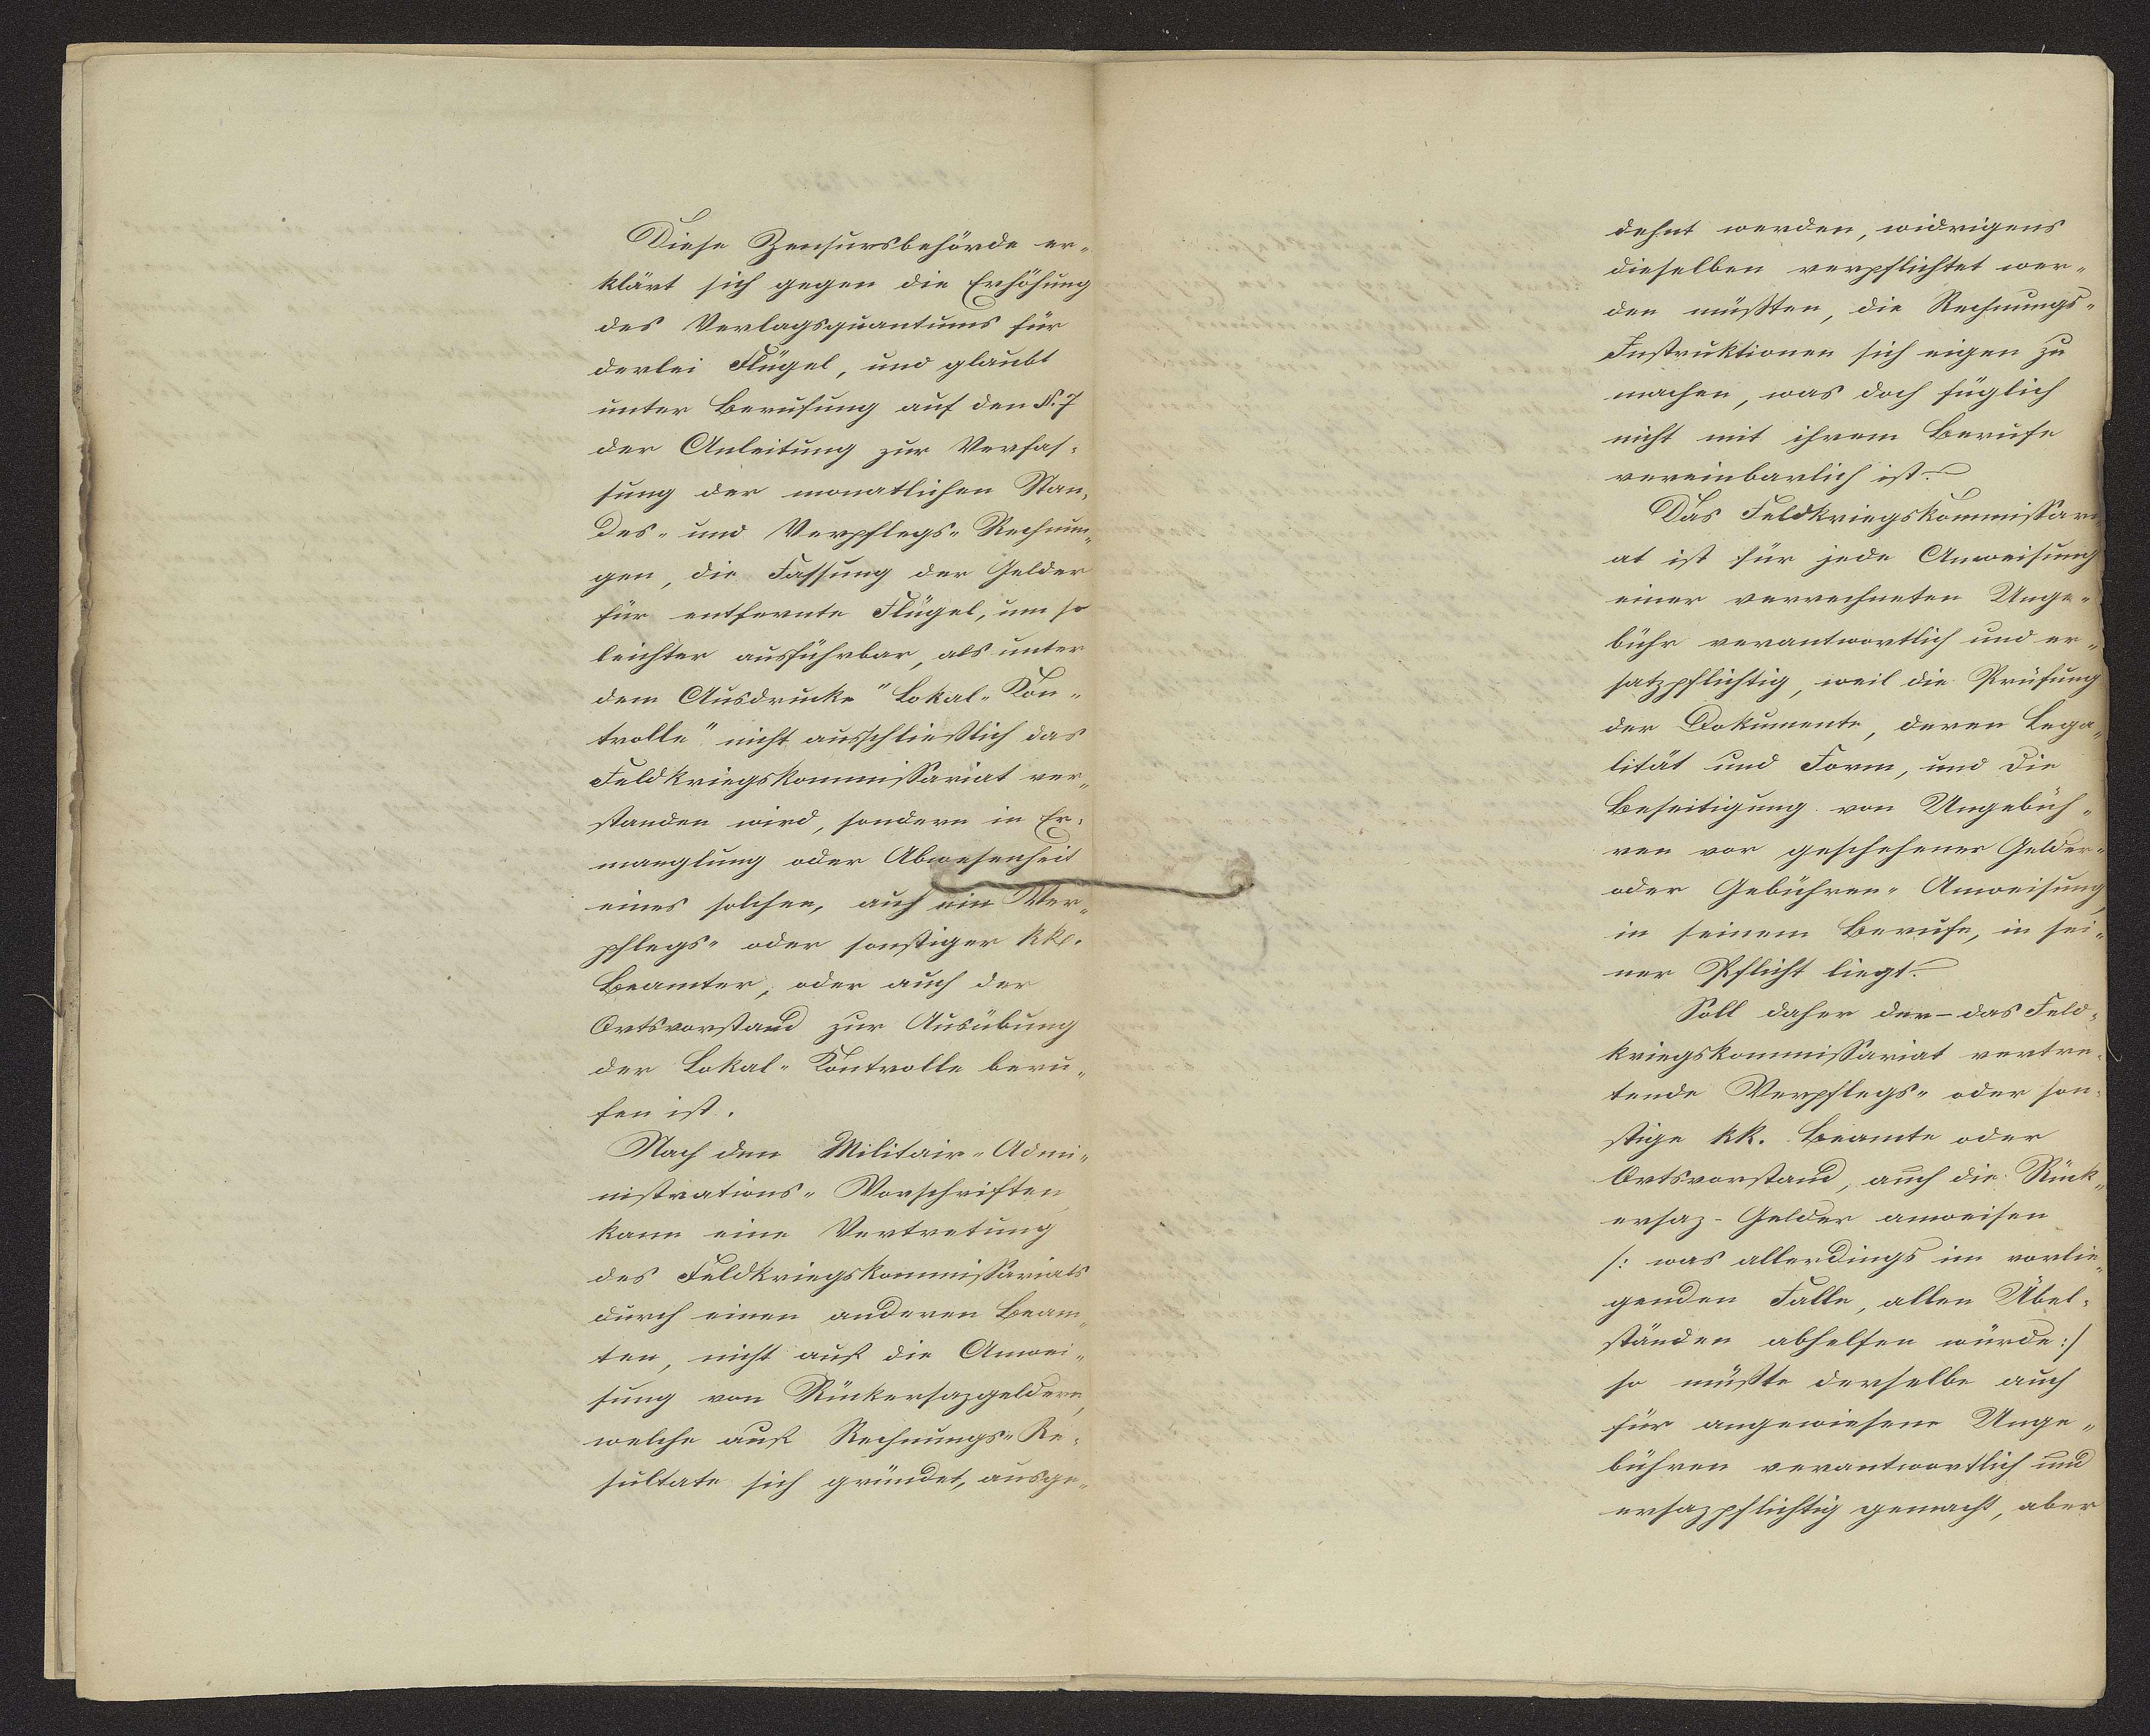 Diese Zensursbehörde er-
klärt sich gegen die Erhöhung
des Verlagsquantums für
derlei Flügel, und glaubt
unter Berufung auf den §. 7
der Anleitung zur Verfas-
sung der monatlichen Stan-
des- und Verpflegs- Rechnun-
gen, die Fassung der Gelder
für entfernte Flügel, um so
leichter ausführbar, als unter
dem Ausdrucke "Lokal- Kon-
trolle" nicht ausschließlich das
Feldkriegskommissariat ver-
standen wird, sondern in Er-
manglung oder Abwesenheit
eines solchen, auch ein Ver-
pflegs- oder sonstiger kk.
Beamter, oder auch der
Ortsvorstand zur Ausübung
der Lokal- Kontrolle beru-
fen ist.
Nach den Militair- Admi-
nistrations- Vorschriften
kann eine Vertretung
des Feldkriegskommissariats
durch einen anderen Beam-
ten, nicht auf die Anwei-
sung von Rückersazgeldern,
welche auf Rechnungs- Re-
sultate sich gründet, ausge-
dehnt werden, widrigens
dieselben verpflichtet wer-
den müßten, die Rechnungs-
Instruktionen sich eigen zu
machen, was doch füglich
nicht mit ihrem Berufe
vereinbarlich ist.
Das Feldkriegskommissari-
at ist für jede Anweisung
einer verrechneten Unge-
bühr verantwortlich und er-
satzpflichtig, weil die Prüfung
der Dokumente, deren Lega-
lität und Form, und die
Beseitigung von Ungebüh-
ren vor geschehener Gelder-
oder Gebühren- Anweisung,
in seinem Berufe, in sei-
ner Pflicht liegt.
Soll daher der - das Feld-
kriegskommissariat vertre-
tende Verpflegs- oder son-
stige kk. Beamte oder
Ortsvorstand, auch die Rück-
ersaz- Gelder anweisen
/: was allerdings im vorlie-
genden Falle, allen Übel-
ständen abhelfen würde :/
so müßte derselbe auch
für angewiesene Unge-
bühren verantwortlich und
ersazpflichtig gemacht, aber